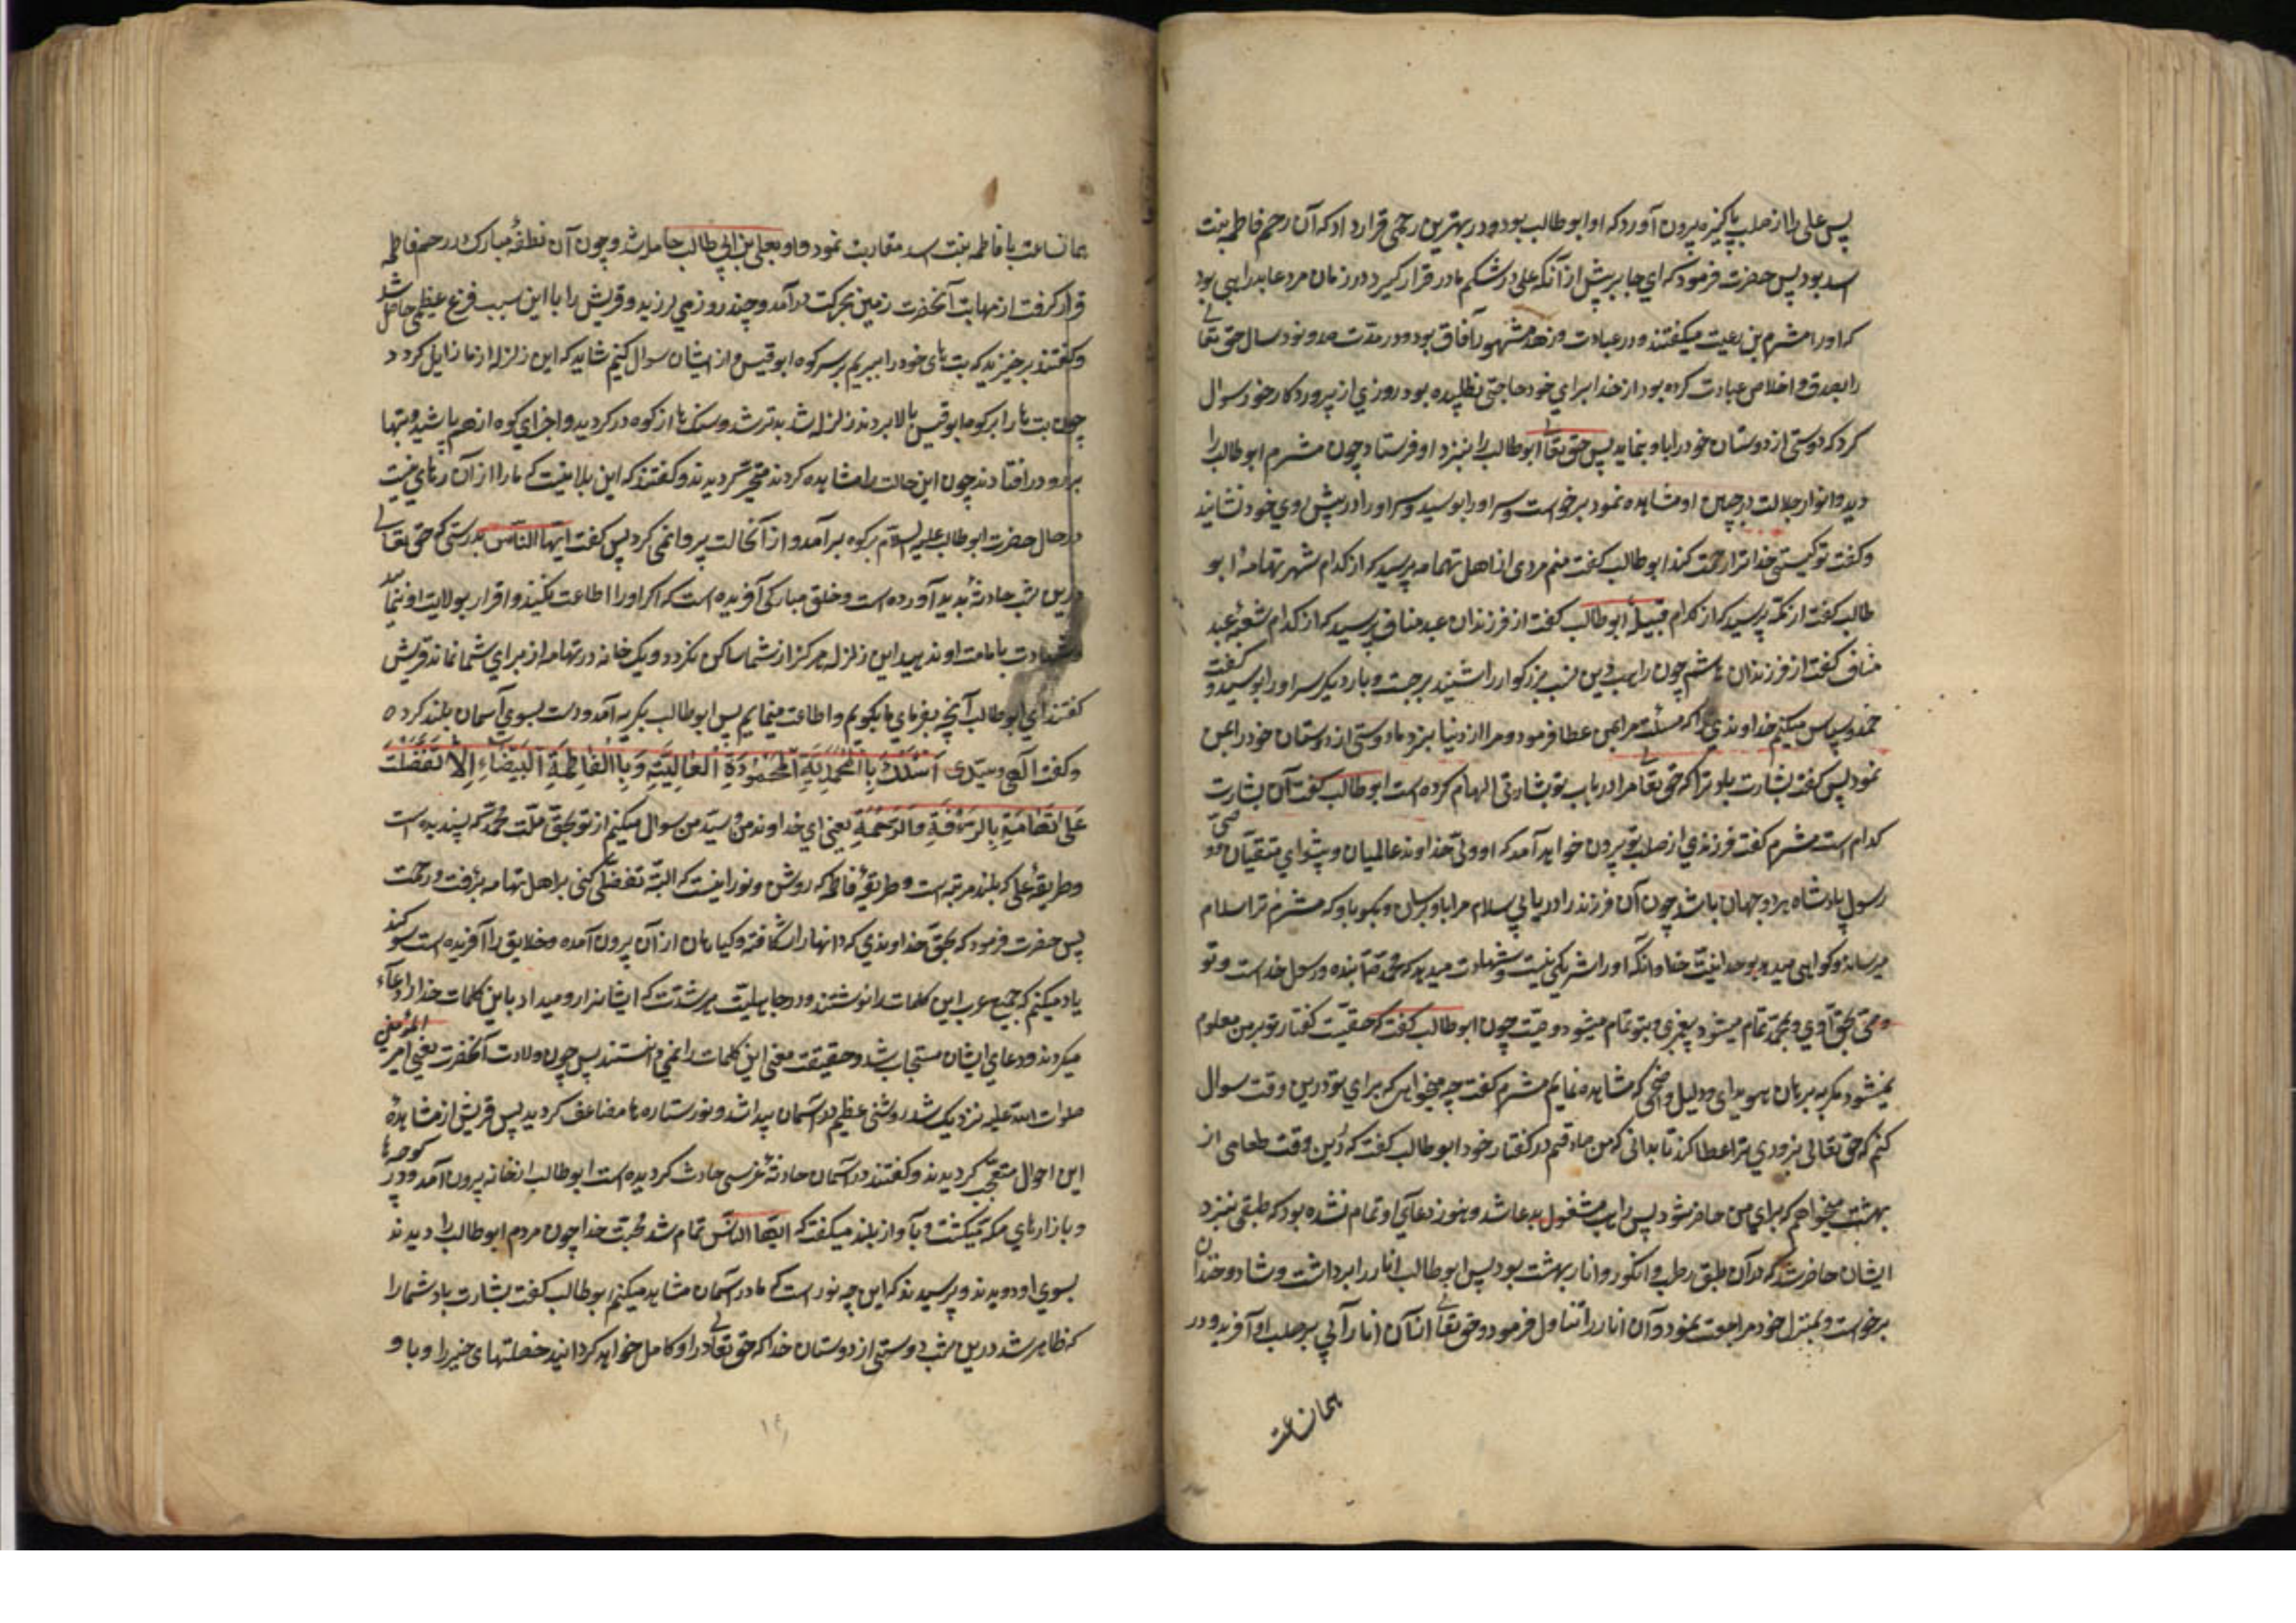 پس علی را از صلب پاکیزه بیرون آورد که او ابوطالب بود و در بهترین رحمی قرار داد که آن رحم فاطمه بنت
اسد بود پس حضرت فرمود که ای جابر پیش از آنکه علی در شکم مادر قرار گیرد در زمان مرد عابد راهبی بود
که او را مشرم بن رعیت میگفتند و در عبادت و زهد مشهور آفاق بود و در مدت صد و نود سال حق تعالی
را بصدق و اخلاص عبادت کرده بود از خدا برای خود حاجتی نطلبیده بود روزی از پروردگار خود سوال
کرد که دوستی از دوستان خود را باو بنماید پس حق تعالی ابوطالب را بنزد او فرستاد چون مشرم ابوطالب را
دید و انوار جلالت در جبین او مشاهده نمود برخواست و سر او را بوسید و سر او را در پیش روی خود نشانید
و گفت تو کیستی خدا ترا رحمت کند ابوطالب گفت منم مردی از اهل تهامه پرسید که از کدام شهر تهامه ابو
طالب گفت از مکه پرسید که از کدام قبیله ابوطالب گفت از فرزندان عبد مناف پرسید که از کدام شعبه عبد
مناف گفت از فرزندان هاشم چون راهب این نسب بزرگوار را شنید برجست و بار دیگر سر او را بوسید و گفت
حمد و سپاس میکنم خداوندی را که مسئلت مرا بمن عطا فرمود و مرا از دنیا نبرد تا دوستی از دوستان خود را بمن
نمود پس گفت بشارت باد ترا که حق تعالی مرا در باب تو بشارتی الهام کرده است ابوطالب گفت آن بشارت
کدام است مشرم گفت فرزندی از صلب تو بیرون خواهد آمد که او ولی خداوند عالمیان و پیشوای متقیان و وصی
رسول پادشاه هر دو جهان باشد چون آن فرزند را دریابی سلام مرا باو برسان و بگو باو که مشرم ترا سلام
میرساند و گواهی میدهد بوحدانیت خدا و آنکه او را شریکی نیست و شهادت میدهد که محمد ص بنده و رسول خداست و تو
وصی بحق اوئی و بمحمد تمام میشود پیغمبری و بتو تمام میشود وصیت چون ابوطالب گفت که حقیقت گفتار تو بر من معلوم
نمیشود مگر به برهان هویدای و دلیل واضحی که مشاهده نمایم مشرم گفت چه میخواهی که برای تو درین وقت سوال
کنم که حق تعالی بزودی بتو اعطا کند تا بدانی که من صادقم در گفتار خود ابوطالب گفت که درین وقت طعامی از
بهشت میخواهم که برای من حاضر شود پس راهب مشغول بدعا شد و هنوز دعای او تمام نشده بود که طبقی بنزد
ایشان حاضر شد که در آن طبق رطب و انگور و انار بهشت بود پس ابوطالب انار را برداشت و شاد و خندان
برخواست و بمنزل خود مراجعت نمود و آن انار را تناول فرمود و حق تعالی از آن انار آبی بر صلب او آفرید و در
همانساعت
همانساعت با فاطمه بنت اسد مقاربت نمود و او بعلی بن ابی طالب حامله شد و چون آن نطفه مبارک در رحم فاطمه
قرار گرفت از مهابت آنحضرت زمین بحرکت در آمد و چند روز می لرزید و قریش را باین سبب فزع عظیمی حاصل شد
و گفتند برخیزید که بت های خود را ببریم بر سر کوه ابو قبیس و از ایشان سوال کنیم شاید که این زلزله از ما زایل گردد
چون بت ها را بر کوه ابوقبیس بالا بردند زلزله شد بدتر شد و سنک ها از کوه در گردید و اجزای کوه از هم پاشید و بتها
برو در افتادند چون این حالت را مشاهده کردند متحیر گردیدند و گفتند که این بلائیست که ما را از آن رهای نیست
درحال حضرت ابوطالب علیه السلام بر کوه بر آمد و از آنحالت پروا نمی کرد پس گفت ایها الناس بدرستی که حق تعالی
درین شب حادثه پدید آورده است و خلق مبارکی آفریده است که اگر او را اطاعت نکنید و اقرار بولایت او ننمائید
و شهادت بامامت او ندهید این زلزله هرگز از شما ساکن نگردد و یک خانه در تهامه از برای شما نماند قریش
گفتند ای ابوطالب آنچه بفرمای ما بگویم و اطاعت مینمایم پس ابوطالب بگریه آمد و دست بسوی آسمان بلند کرده
و گفت الهی و سیدی اَسْئَلُكَ بِالْمُحَمَّدِيَّةِ الْمَحْمُودَةِ الْعَالِيَةِ وَبِالْفَاطِمَةِ الْبَيْضَاءِ اِلَّا تَفَضَّلْتَ
عَلَى التِّهَامَةِ بِالرَّئْفَةِ وَالرَّحْمَةِ یعنی ای خداوند من و سید من سوال میکنم از تو بحق ملت محمد که پسندیده است
و طریقه علی که بلند مرتبه است و طریقه فاطمه که روشن و نورانیست که البته تفضلی کنی بر اهل تهامه برأفت و رحمت
پس حضرت فرمود که بحق خداوندی که دانها را شکافته و گیاهان از آن بیرون آمده و خلایق را آفریده است سوگند
یاد میکنم که جمیع عرب این کلمات را نوشتند و در جاهلیت هر شدت که ایشانرا رو میداد باین کلمات خدا را دعاء
میکردند و دعای ایشان مستجاب شد و حقیقت معنی این کلمات را نمی دانستند پس چون ولادت آنحضرت یعنی امیر المؤمنین
صلوات الله علیه نزدیک شد روشنی عظیم در آسمان پیدا شد و نور ستاره ها مضاعف گردید پس قریش از مشاهده
این احوال متعجب گردیدند و گفتند در آسمان حادثه غریبی حادث گردیده است ابوطالب از خانه بیرون آمد و در کوچه ها
و بازارهای مکه میگشت و بآواز بلند میگفت که ایها الناس تمام شد حجت خدا چون مردم ابوطالب را دیدند
بسوی او دویدند و پرسیدند که این چه نور است که ما در آسمان مشاهده میکنیم ابوطالب گفت بشارت باد شما را
که ظاهر شد درین شب دوستی از دوستان خدا که حق تعالی در او کامل خواهد گردانید خصلتهای خیر را و باو